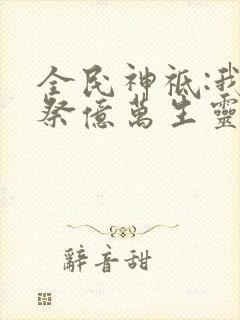 全民神祇:我
祭億萬生靈
辭音甜